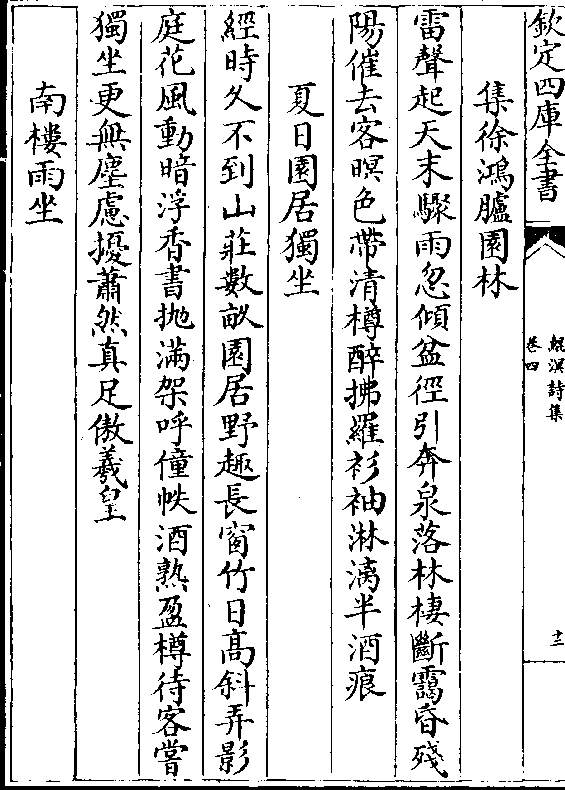 欽定四庫全書
鯤溟詩集
卷四
十二
集徐鴻臚園林
雷聲起天末驟雨忽傾盆徑引奔泉落林棲斷靄昏殘
陽催去客暝色帶清樽醉拂羅衫袖淋漓半酒痕
夏日園居獨坐
經時久不到山莊數畝園居野趣長窗竹日高斜弄影
庭花風動暗浮香書拋滿架呼僮帙酒熟盈樽待客嘗
獨坐更無塵慮擾蕭然真足傲羲皇
南樓雨坐